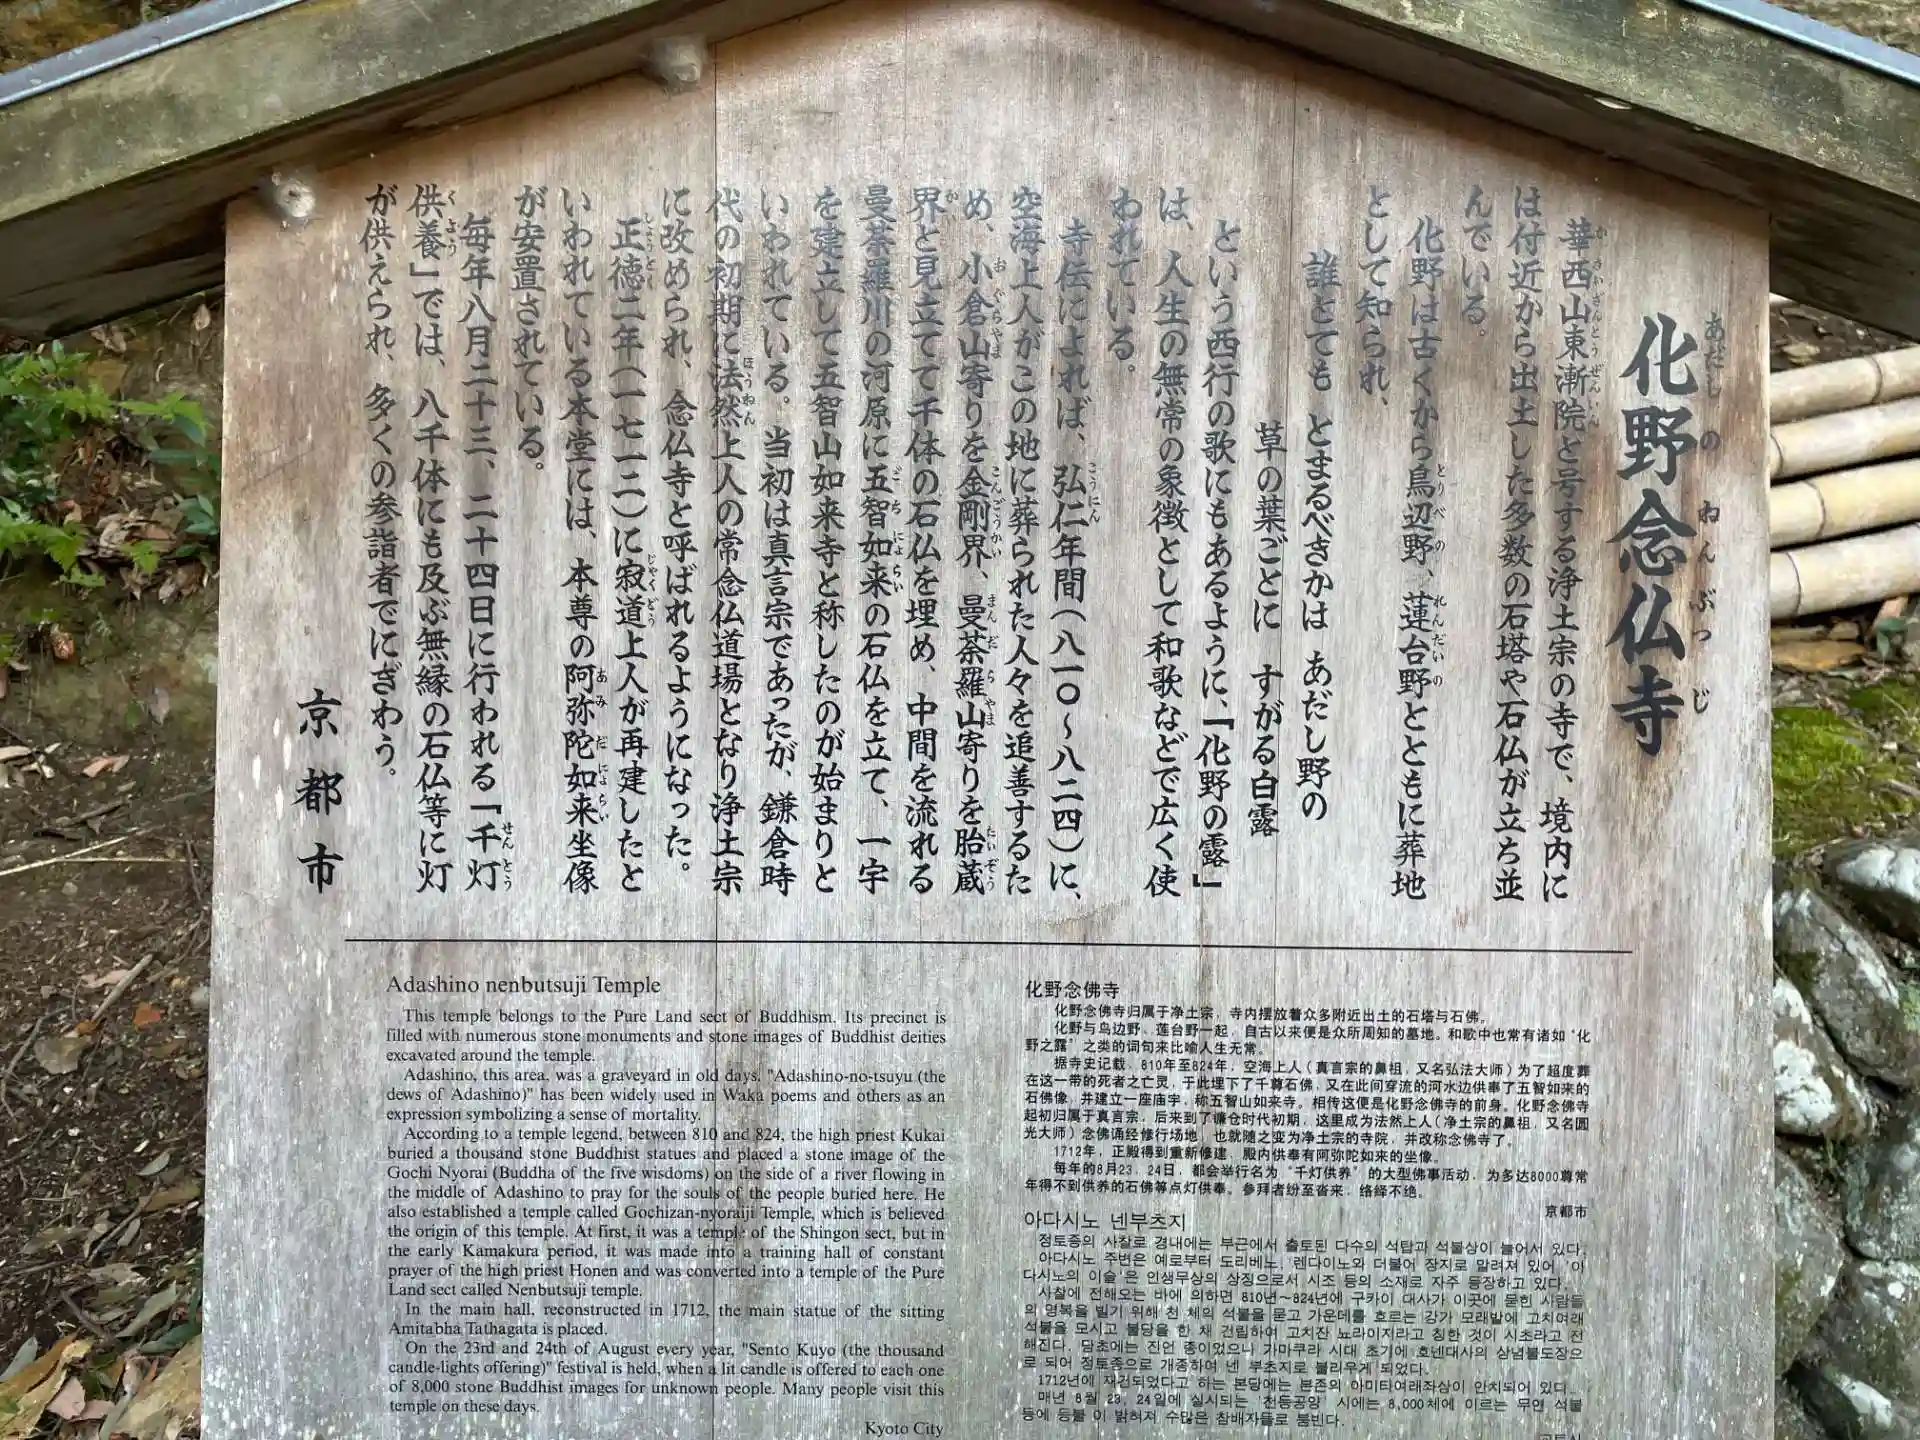 化野念仏寺
あだしのねんぶつじ
華西山東漸院と号する浄土宗の寺で、境内に
は付近から出土した多数の石塔や石仏が立ち並
んでいる。
化野は古くから鳥辺野、蓮台野とともに葬地
として知られ、
誰とても とまるべきかは あだし野の
草の葉ごとに すがる白露
という西行の歌にもあるように、「化野の露」
は、人生の無常の象徴として和歌などで広く使
われている。
寺伝によれば、弘仁年間(八一〇〜八二四)に、
空海上人がこの地に葬られた人々を追善するた
め、小倉山寄りを金剛界、曼荼羅山寄りを胎蔵
界と見立てて千体の石仏を埋め、中間を流れる
曼荼羅川の河原に五智如来の石仏を立て、一宇
を建立して五智山如来寺と称したのが始まりと
いわれている。当初は真言宗であったが、鎌倉時
代の初期に法然上人の常念仏道場となり浄土宗
に改められ、念仏寺と呼ばれるようになった。
正徳二年(一七一二)に寂道上人が再建したと
いわれている本堂には、本尊の阿弥陀如来坐像
が安置されている。
毎年八月二十三、二十四日に行われる「千灯
供養」では、八千体にも及ぶ無縁の石仏等に灯
が供えられ、多くの参詣者でにぎわう。
京都市
Adashino nenbutsuji Temple
This temple belongs to the Pure Land sect of Buddhism. Its precinct is
filled with numerous stone monuments and stone images of Buddhist deities
excavated around the temple.
Adashino, this area, was a graveyard in old days. "Adashino-no-tsuyu (the
dews of Adashino)" has been widely used in Waka poems and others as an
expression symbolizing a sense of mortality.
According to a temple legend, between 810 and 824, the high priest Kukai
buried a thousand stone Buddhist statues and placed a stone image of the
Gochi Nyorai (Buddha of the five wisdoms) on the side of a river flowing in
the middle of Adashino to pray for the souls of the people buried here. He
also established a temple called Gochizan-nyoraiji Temple, which is believed
the origin of this temple. At first, it was a temple of the Shingon sect, but in
the early Kamakura period, it was made into a training hall of constant
prayer of the high priest Honen and was converted into a temple of the Pure
Land sect called Nenbutsuji temple.
In the main hall, reconstructed in 1712, the main statue of the sitting
Amitabha Tathagata is placed.
On the 23rd and 24th of August every year, "Sento Kuyo (the thousand
candle-lights offering)" festival is held, when a lit candle is offered to each one
of 8,000 stone Buddhist images for unknown people. Many people visit this
temple on these days.
Kyoto City
化野念佛寺
化野念佛寺归属于净土宗，寺内摆放着众多附近出土的石塔与石佛。
化野与鸟边野、莲台野一起，自古以来便是众所周知的墓地。和歌中也常有诸如“化
野之露”之类的词句来比喻人生无常。
据寺史记载，810年至824年，空海上人（真言宗的鼻祖，又名弘法大师）为了超度葬
在这一带的死者之亡灵，于此埋下了千尊石佛，又在此间穿流的河水边供奉了五智如来的
石佛像，并建立一座庙宇，称五智山如来寺。相传这便是化野念佛寺的前身。化野念佛寺
起初归属于真言宗，后来到了镰仓时代初期，这里成为法然上人（净土宗的鼻祖，又名圆
光大师）念佛诵经修行场地，也就随之变为净土宗的寺院，并改称念佛寺了。
1712年，正殿得到重新修建，殿内供奉有阿弥陀如来的坐像。
每年的8月23、24日，都会举行名为“千灯供养”的大型佛事活动，为多达8000尊常
年得不到供养的石佛等点灯供奉。参拜者纷至沓来，络绎不绝。
京都市
아다시노 넨부츠지
정토종의 사찰로 경내에는 부근에서 출토된 다수의 석탑과 석불상이 늘어서 있다.
아다시노 주변은 예로부터 도리베노, 렌다이노와 더불어 장지로 알려져 있어, '아
다시노의 이슬'은 인생무상의 상징으로서 시조 등의 소재로 자주 등장하고 있다.
사찰에 전해오는 바에 의하면 810년～824년에 구카이 대사가 이곳에 묻힌 사람들
의 명복을 빌기 위해 천 체의 석불을 묻고 가운데를 흐르는 강가 모래밭에 고치여래
석불을 모시고 불당을 한 채 건립하여 고치잔 뇨라이지라고 칭한 것이 시초라고 전
해진다. 당초에는 진언 종이었으나 가마쿠라 시대 초기에 호넨대사의 상념불도장으
로 되어 정토종으로 개종하여 넨 부츠지로 불리우게 되었다.
1712년에 재건되었다고 하는 본당에는 본존의 아미타여래좌상이 안치되어 있다.
매년 8월 23, 24일에 실시되는 '천등공양' 시에는 8,000체에 이르는 무연 석불
등에 등불 이 밝혀져 수많은 참배자들로 붐빈다.